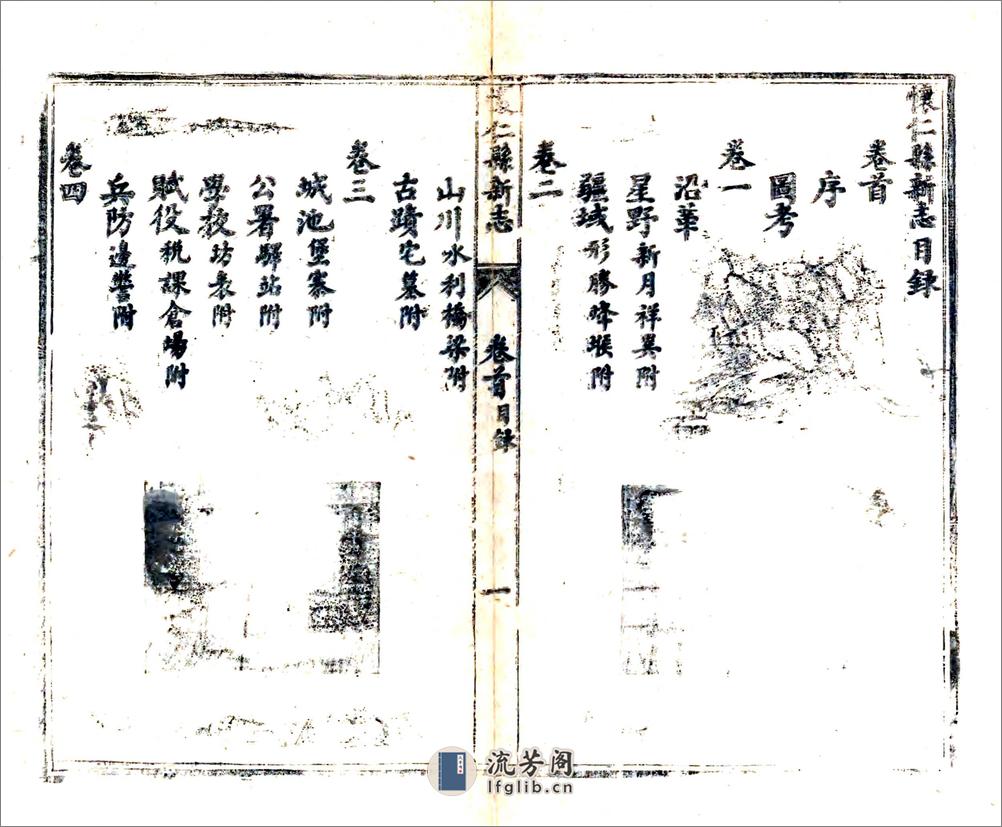 懷仁縣新志目録
卷首
序
圖考
卷一
沿革
星野新月祥異附
疆域形勝烽堠附
卷二
懷仁縣新志 卷首目録 一
山川水利橋梁附
古蹟宅墓附
卷三
城池堡寨附
公署驛站附
學校坊表附
賦役税課倉場附
兵防邊警附
卷四
流芳阁
lfglib.cn